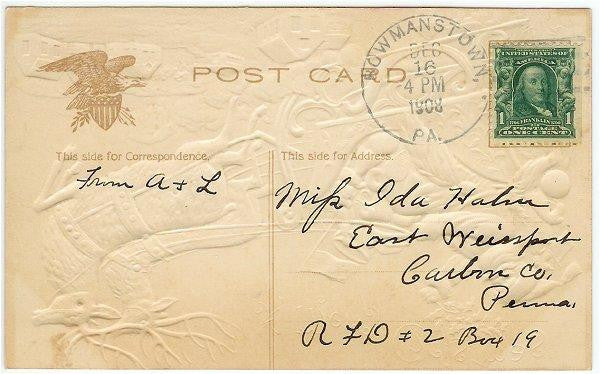 POST CARD
BOWMANSTOWN,
DEC
16
4 PM
1908
PA.
UNITED STATES OF AMERICA
1
FRANKLIN
1
POSTAGE
ONE CENT
This side for Correspondence.
This side for Address.
From A & L
Miss Ida Hahn
East Weissport
Carbon Co.
Penna.
R F D # 2 Box 19